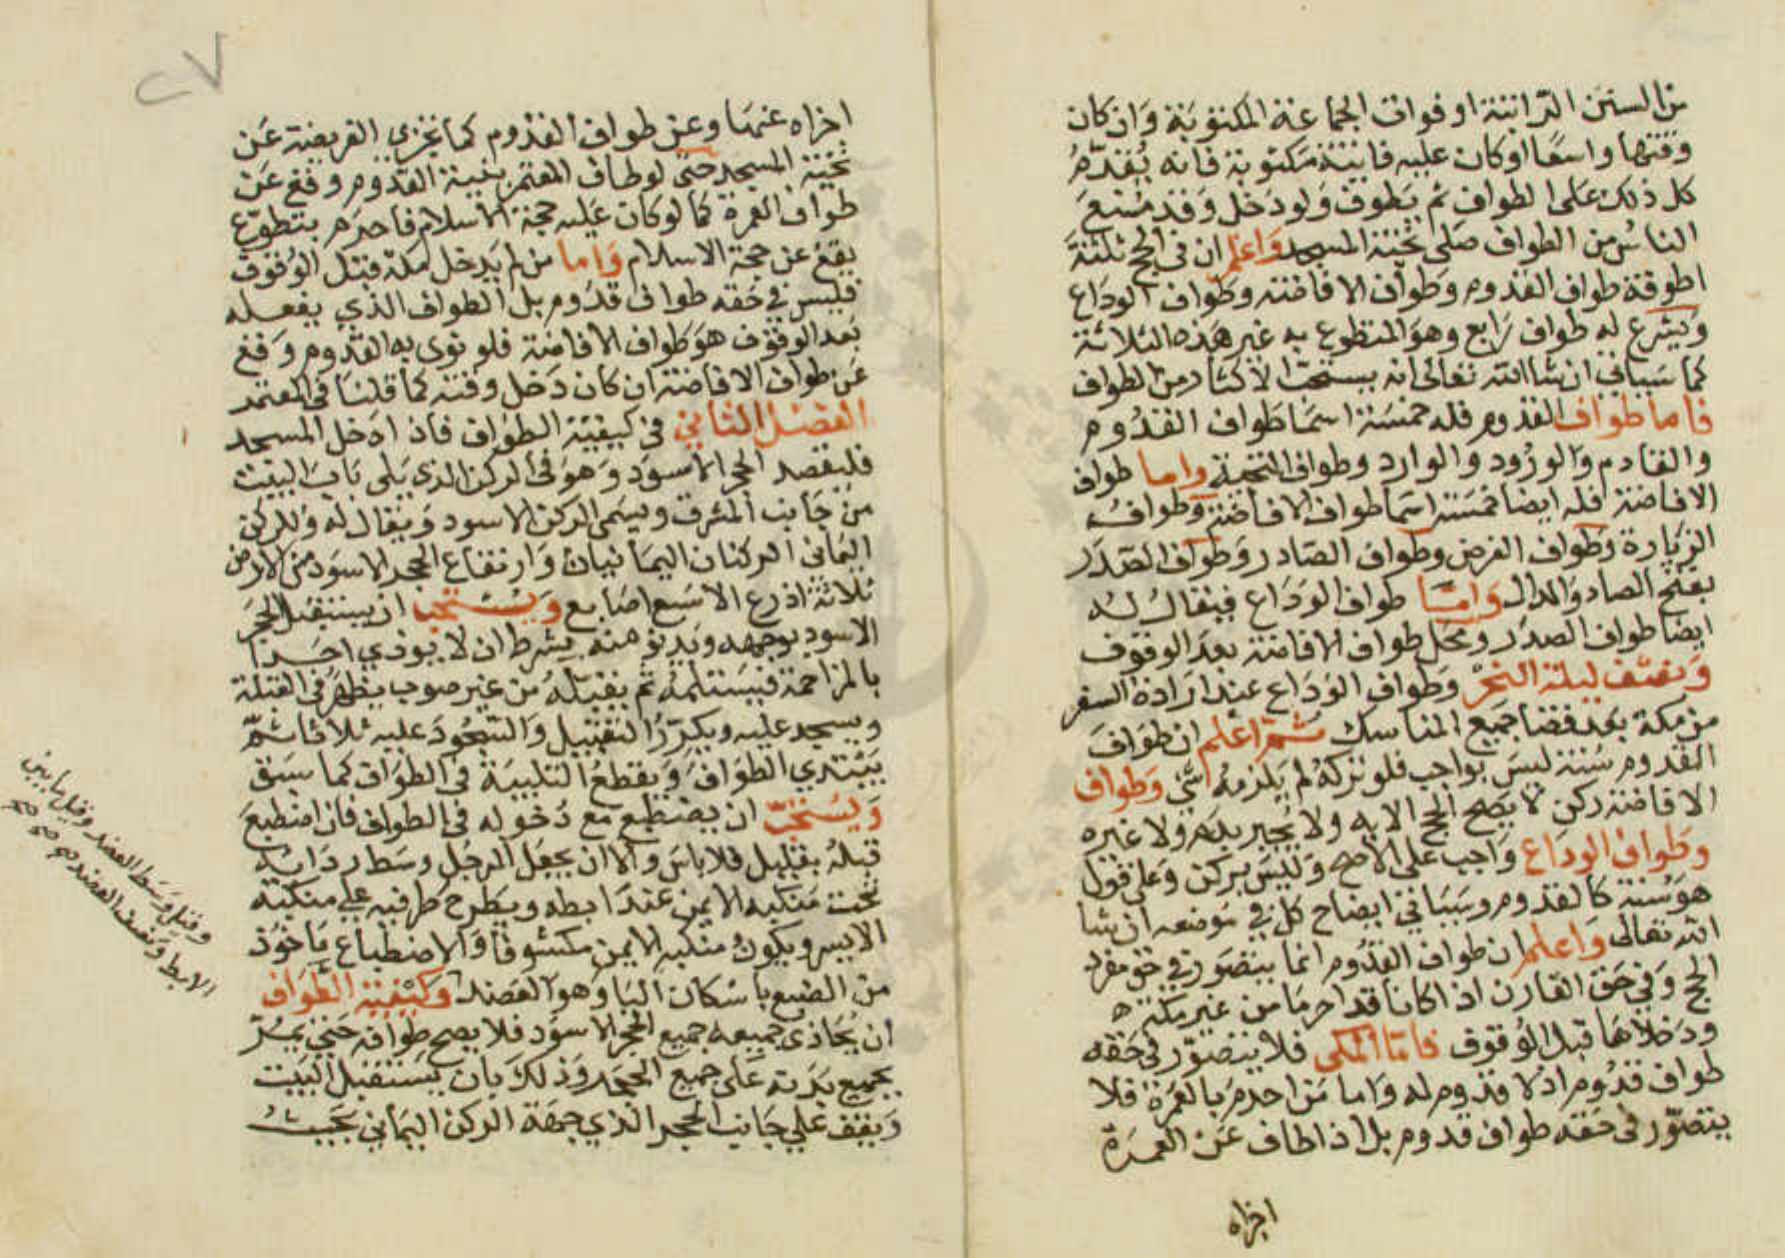 من السنن الراتبة او فوات الجماعة المكتوبة وان كان
وقتها واسعا او كان عليه فايتة مكتوبة فانه يقدم
كل ذلك على الطواف ثم يطوف ولو دخل وقد منع
الناس من الطواف صلى تحية المسجد واعلم ان في الحج ثلثة
اطوفة طواف القدوم وطواف الافاضة وطواف الوداع
ويشرع له طواف رابع وهو المتطوع به غير هذه الثلاثة
كما سياتي ان شا الله تعالى انه يستحب الاكثار من الطواف
فاما طواف القدوم فله خمسة اسما طواف القدوم
والقادم والورود والوارد وطواف التحية واما طواف
الافاضة فله ايضا خمسة اسما طواف الافاضة وطواف
الزيارة وطواف الفرض وطواف الصادر وطواف الصدر
بفتح الصاد والدال واما طواف الوداع فيقال له
ايضا طواف الصدر ومحل طواف الافاضة بعد الوقوف
ونصف ليلة النحر وطواف الوداع عند ارادة السفر
من مكة بعد قضا جميع المناسك ثم اعلم ان طواف
القدوم سنة ليس بواجب فلو تركه لم يلزمه شي وطواف
الافاضة ركن لا يصح الحج الا به ولا يجبر بدم ولا غيره
وطواف الوداع واجب على الاصح وليس بركن وعلى قول
هو سنة كالقدوم وسياتي ايضاح كل في موضعه ان شا
الله تعالى واعلم ان طواف القدوم انما يتصور في حق مفرد
الحج وفي حق القارن اذا كانا قد احرما من غير مكة
ودخلاها قبل الوقوف فاما المكي فلا يتصور في حقه
طواف قدوم اذ لا قدوم له واما من احرم بالعمرة فلا
يتصور في حقه طواف قدوم بل اذا طاف عن العمرة
اجزاه
٢٧
اجزاه عنها وعن طواف القدوم كما تجزي الفريضة عن
تحية المسجد حتى لو طاف المعتمر بنية القدوم وقع عن
طواف العمرة كما لو كان عليه حجة الاسلام فاحرم بتطوع
يقع عن حجة الاسلام واما من لم يدخل مكة قبل الوقوف
فليس في حقه طواف قدوم بل الطواف الذي يفعله
بعد الوقوف هو طواف الافاضة فلو نوى به القدوم وقع
عن طواف الافاضة ان كان دخل وقته كما قلنا في المعتمر
الفصل الثاني في كيفية الطواف فاذا دخل المسجد
فليقصد الحجر الاسود وهو في الركن الذي يلي باب البيت
من جانب المشرق ويسمى الركن الاسود ويقال له وللركن
اليماني الركنان اليمانيان وارتفاع الحجر الاسود من الارض
ثلاثة اذرع الا سبع اصابع ويستحب ان يستقبل الحجر
الاسود بوجهه ويدنو منه بشرط ان لا يوذي احدا
بالمزاحمة فيستلمه ثم يقبله من غير صوت يظهر في القبلة
ويسجد عليه ويكرر التقبيل والسجود عليه ثلاثا ثم
يبتدي الطواف ويقطع التلبية في الطواف كما سبق
ويستحب ان يضطبع مع دخوله في الطواف فان اضطبع
قبله بقليل فلا باس والا ان يجعل الرجل وسط ردايه
تحت منكبه الايمن عند ابطه ويطرح طرفيه على منكبه
الايسر ويكون منكبه الايمن مكشوفا والاضطباع ماخوذ
من الضبع باسكان البا وهو العضد وكيفية الطواف
ان يحاذي جميعه جميع الحجر الاسود فلا يصح طوافه حتى يمر
بجميع بدنه على جميع الحجر وذلك بان يستقبل البيت
ويقف على جانب الحجر الذي جهة الركن اليماني بحيث
وقيل وسط العضد وقيل ما بين
الابط ونصف العضد صح صح صح